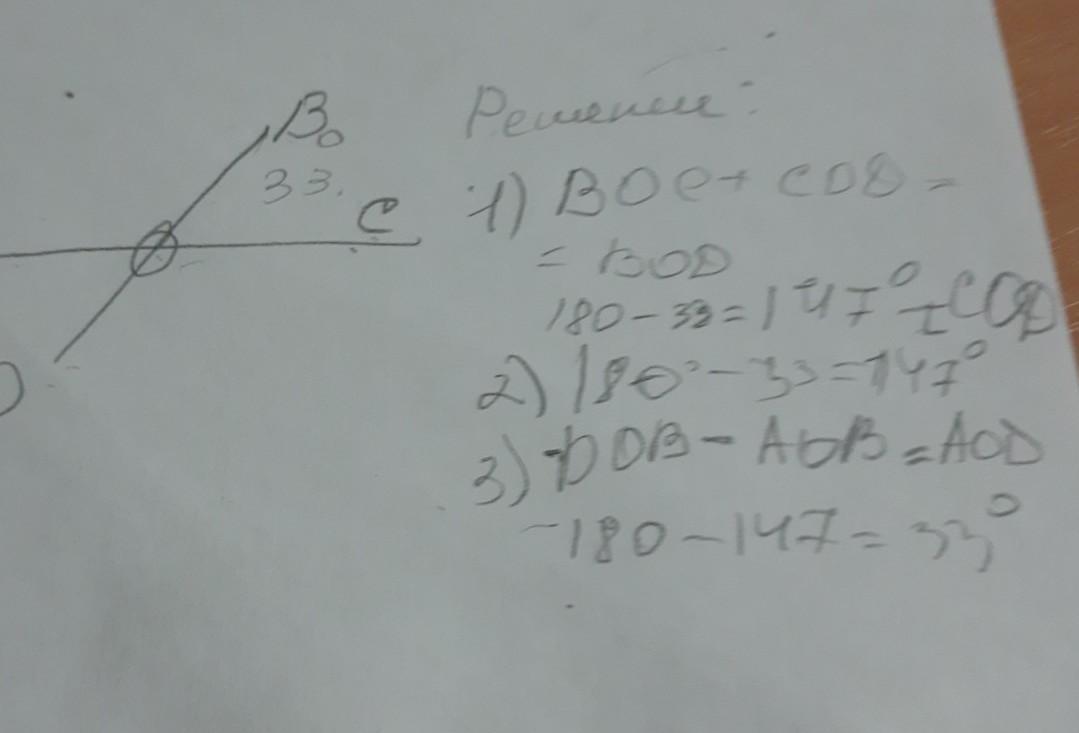 B
33°
C
D
Решение:
1) BOC + COD =
= BOD
180-33=147° = COD
2) 180°-33=147°
3) DOB - AOB = AOD
180-147=33°